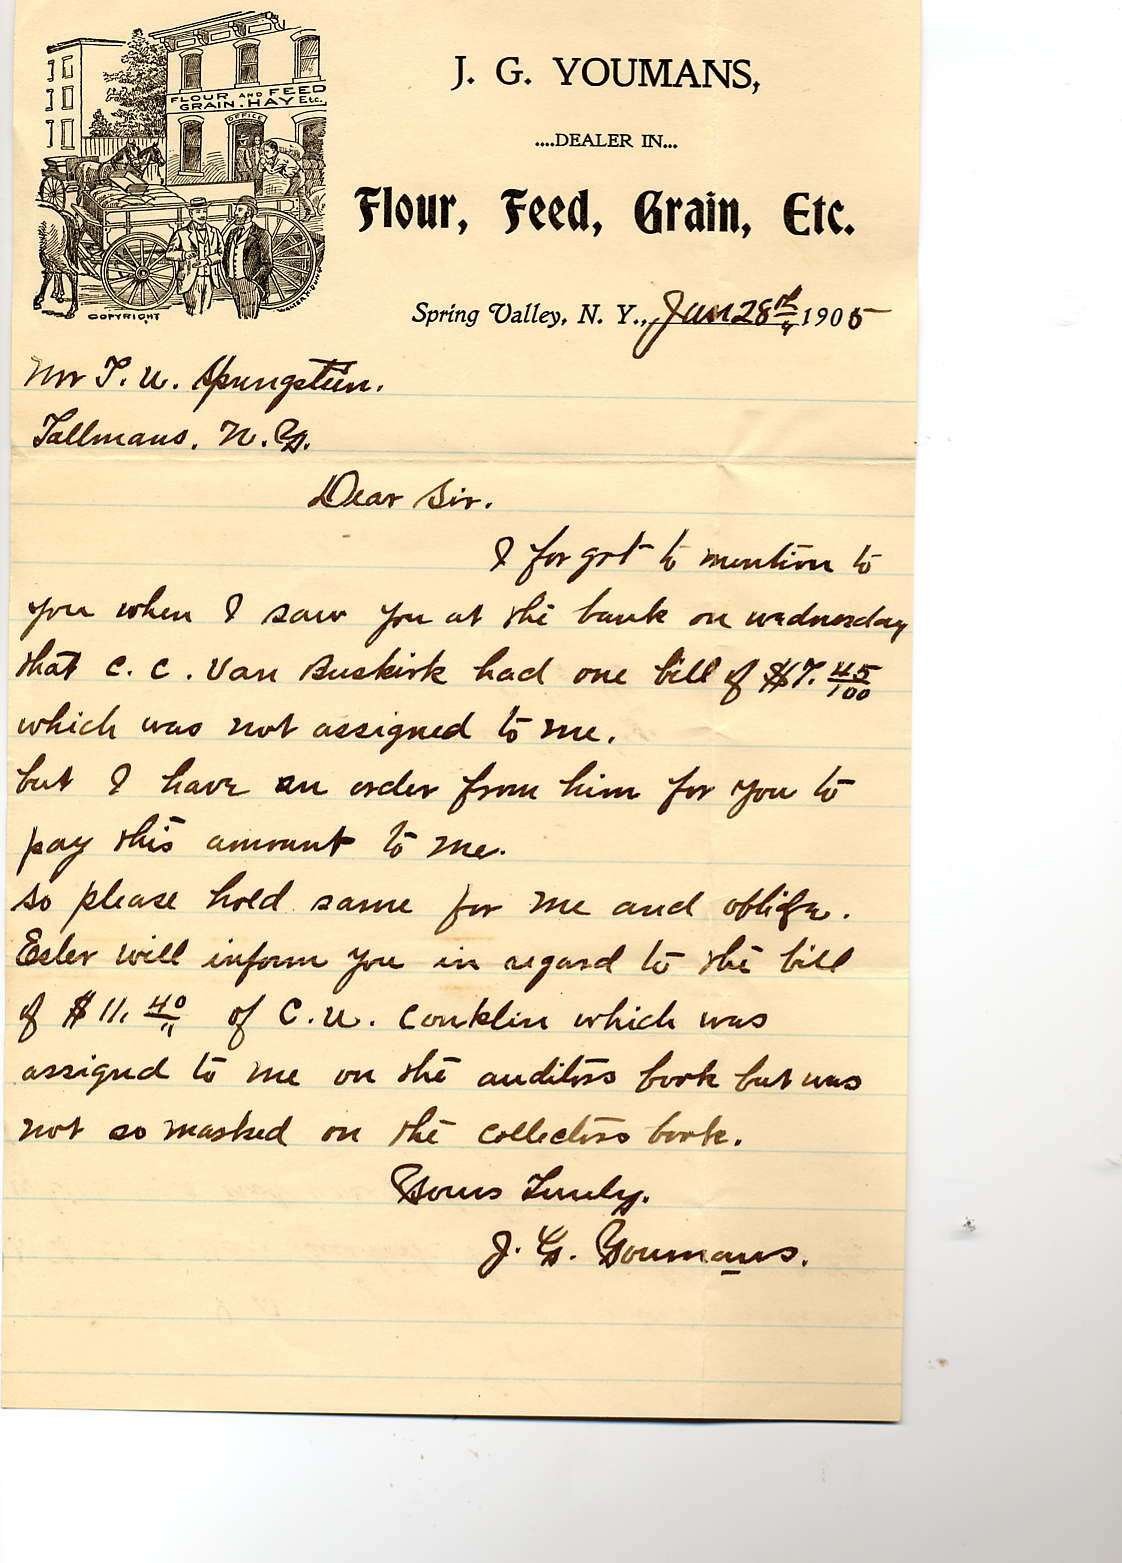 FLOUR AND FEED
GRAIN. HAY Etc.
OFFICE
COPYRIGHT
J. G. YOUMANS,
....DEALER IN...
Flour, Feed, Grain, Etc.
Spring Valley, N. Y., Jan 28th 1905
Mr T. U. Springstien.
Tallmans. N. Y.
Dear Sir.
I forgot to mention to
you when I saw you at the bank on wednesday
that C. C. Van Buskirk had one bill of $7. 45/100
which was not assigned to me.
but I have an order from him for you to
pay this amount to me.
so please hold same for me and oblige.
Esler will inform you in regard to the bill
of $11. 40/" of C. U. Conklin which was
assigned to me on the auditors book but was
not so marked on the collectors book.
Yours Truely.
J. G. Youmans.